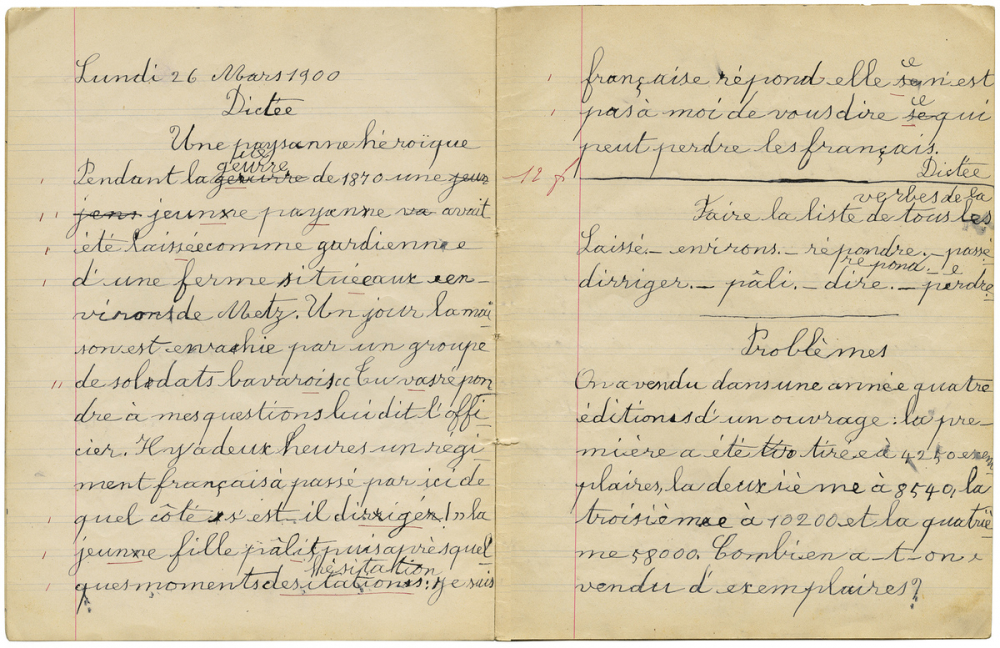 Lundi 26 Mars 1900
Dictée
Une paysanne héroïque
guerre
Pendant la de 1870 une jeun
jeune payanne va avait
été laissé comme gardienne
d'une ferme située aux en-
virons de Metz. Un jour la mai
son est envahie par un groupe
de soldats bavarois « Tu vas répon
dre à mes questions lui dit l'offi
cier. Il y a deux heures un régi
ment français à passé par ici de
quel côté s'est-il dirriger! » la
jeune fille pâlit puis après quel
hésitation
ques moments desitations : je suis
française répond elle se n'est
ce
pas à moi de vous dire se qui
ce
peut perdre les français.
12 f
Dictée
verbes de la
Faire la liste de tous les
Laissé. – environs. – répondre. – passé
répond. – e
dirriger. – pâli. – dire. – perdre
Problèmes
On a vendu dans une année quatre
éditions d'un ouvrage : la pre-
mière a été tirée à 4250 exem
plaires, la deuxième à 8540, la
troisième à 10200 et la quatriè
me 58000. Combien a-t-on
vendu d'exemplaires?